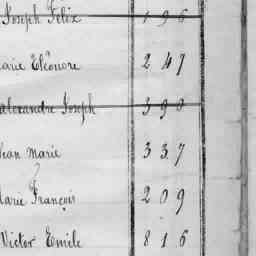 Joseph Félix 196
arie Eléonore 247
Alexandre Joseph 390
Jean Marie 337
Marie François 209
Victor Emile 816